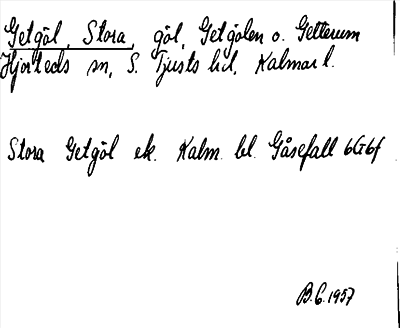 Getgöl, Stora, göl, Getgölen o. Getterum
Hjorteds sn, S. Tjusts hd, Kalmar l.
Stora Getgöl ek. Kalm. bl. Gåsefall 6G6f
B.G. 1957